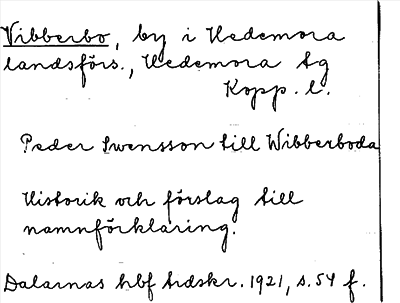 Vibberbo, by i Hedemora
landsförs., Hedemora Sg
Kopp. l.
Peder Swensson till Wibberboda
Historik och förslag till
namnförklaring.
Dalarnas hbf årdskr. 1921, s. 54 f.